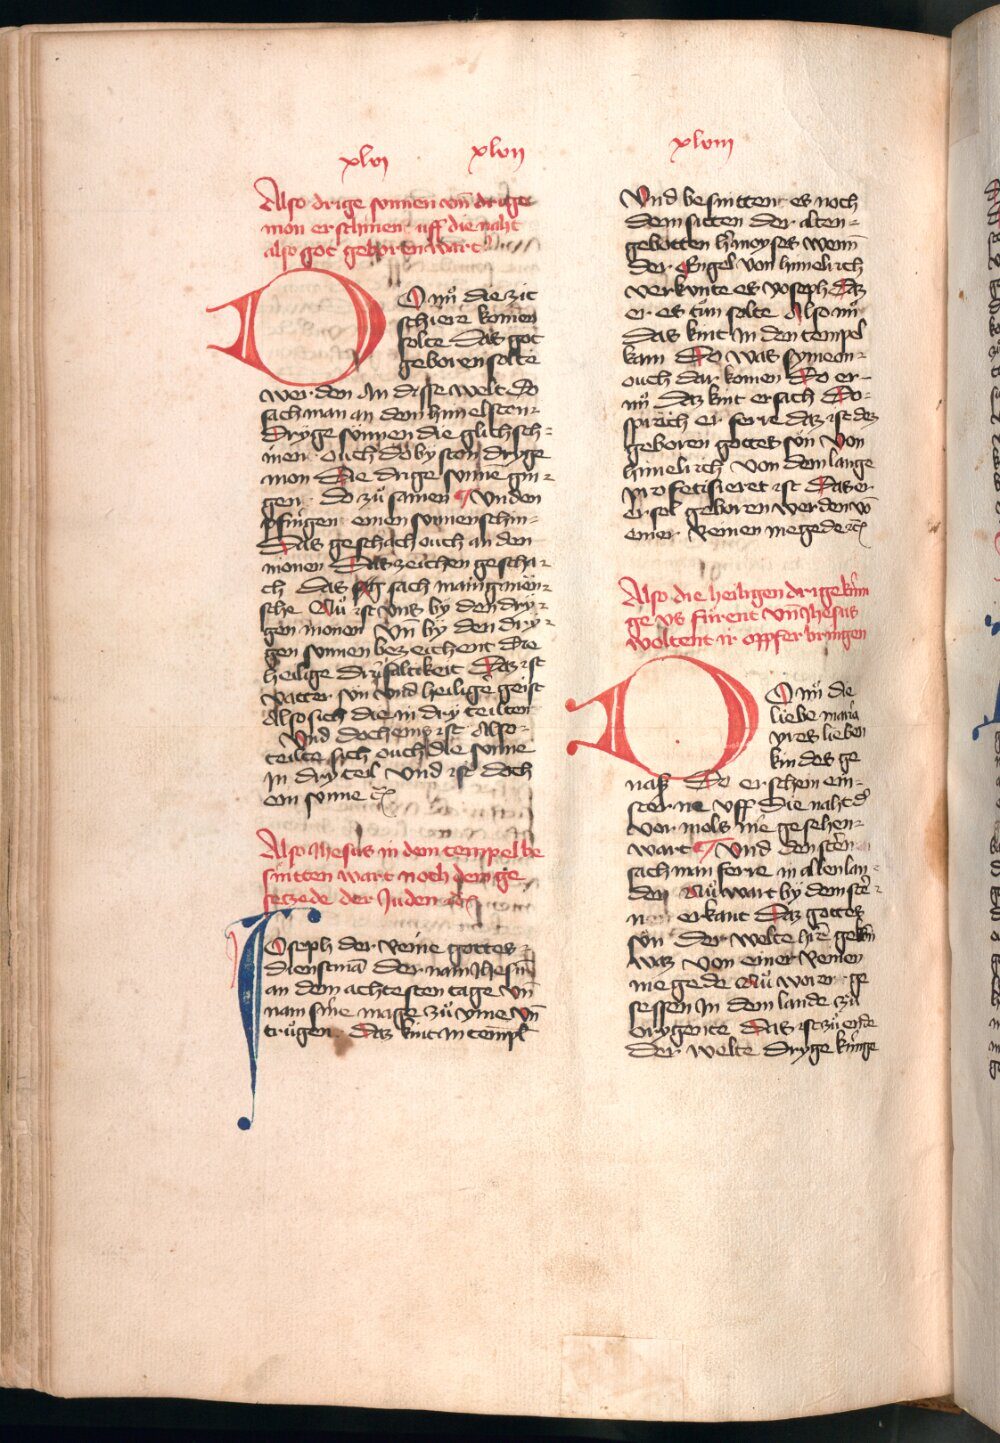 xlvj xlvij
Also drige sunnen vn̄ drige
mon erschinen uff die naht
also got geboren wart
DO nuͦ die zit
schiere komen
solte Das got
geboren solte
werden In disse welt Do
sach man an dem himelsten-
Dryge sunnen die glich sch-
inen ouch do by ston dryge
mon Die drige sunnē gin-
gen Do zuͦ samen ¶ Vnd en
pfingen einen sunnen schin-
Das geschach ouch an den
monen Das zeichen gescha-
ch Das sach manig mön-
sche Nuͦ ist vns by den dry-
gen monen Vn̄ by den dry-
gen sunnen bezeichent Die
heilige Drifaltikeit Daz ist
vatter sun vnd heilige geist
Also sich die in dry teilten
Vnd doch eins ist Also-
teilte sich ouch die sunne
In dry teil Vnd ist doch
ein sunne ꝛc
Also Jhesus in dem tempel be
snitten wart noch dem ge
seczede der Juden ꝛc
IOseph der reine gottes-
dienstmā der nam Jhesum
an dem achtesten tage Vn̄
nam sine mage zuͦ yme Vn̄
truͦgen Daz kint in tempel
xlviij
Vnd besnittent es noch
dem sitten der alten-
gebotten her moyses wenn
der Engel von himelrich
verkunte es yoseph Daz
er es tuͦn solte Also nuͦ
Das kint In den tempel
kam Do was symeon-
ouch dar komen Do er-
nuͦ Daz kint ersach Do-
sprach er ferre daz ist des
geboren gottes sun Von
himelrich von dem lange
profetisieret ist Das er
ersol geboren werden vō
einer reinen megede ꝛc
Also die heiligen drige kún
ge vs fürent vn̄ Jhesus
woltent ir opffer bringen
DO nuͦ die
liebe maria
yres lieben
kindes ge
nas Do erschein ein-
sterne vff die naht d'
vor mols nie gesehen-
wart ¶ Vnd den stern
sach man ferre in allen lan-
den Nuͦ wart by dem ster-
nen erkant Daz gottes
sun der welte here geborn
was von einer reinen
megede Nuͦ worer ge
sessen In dem lande zuͦ
orygente Das ist zuͦ ende
der welte Dryge künige